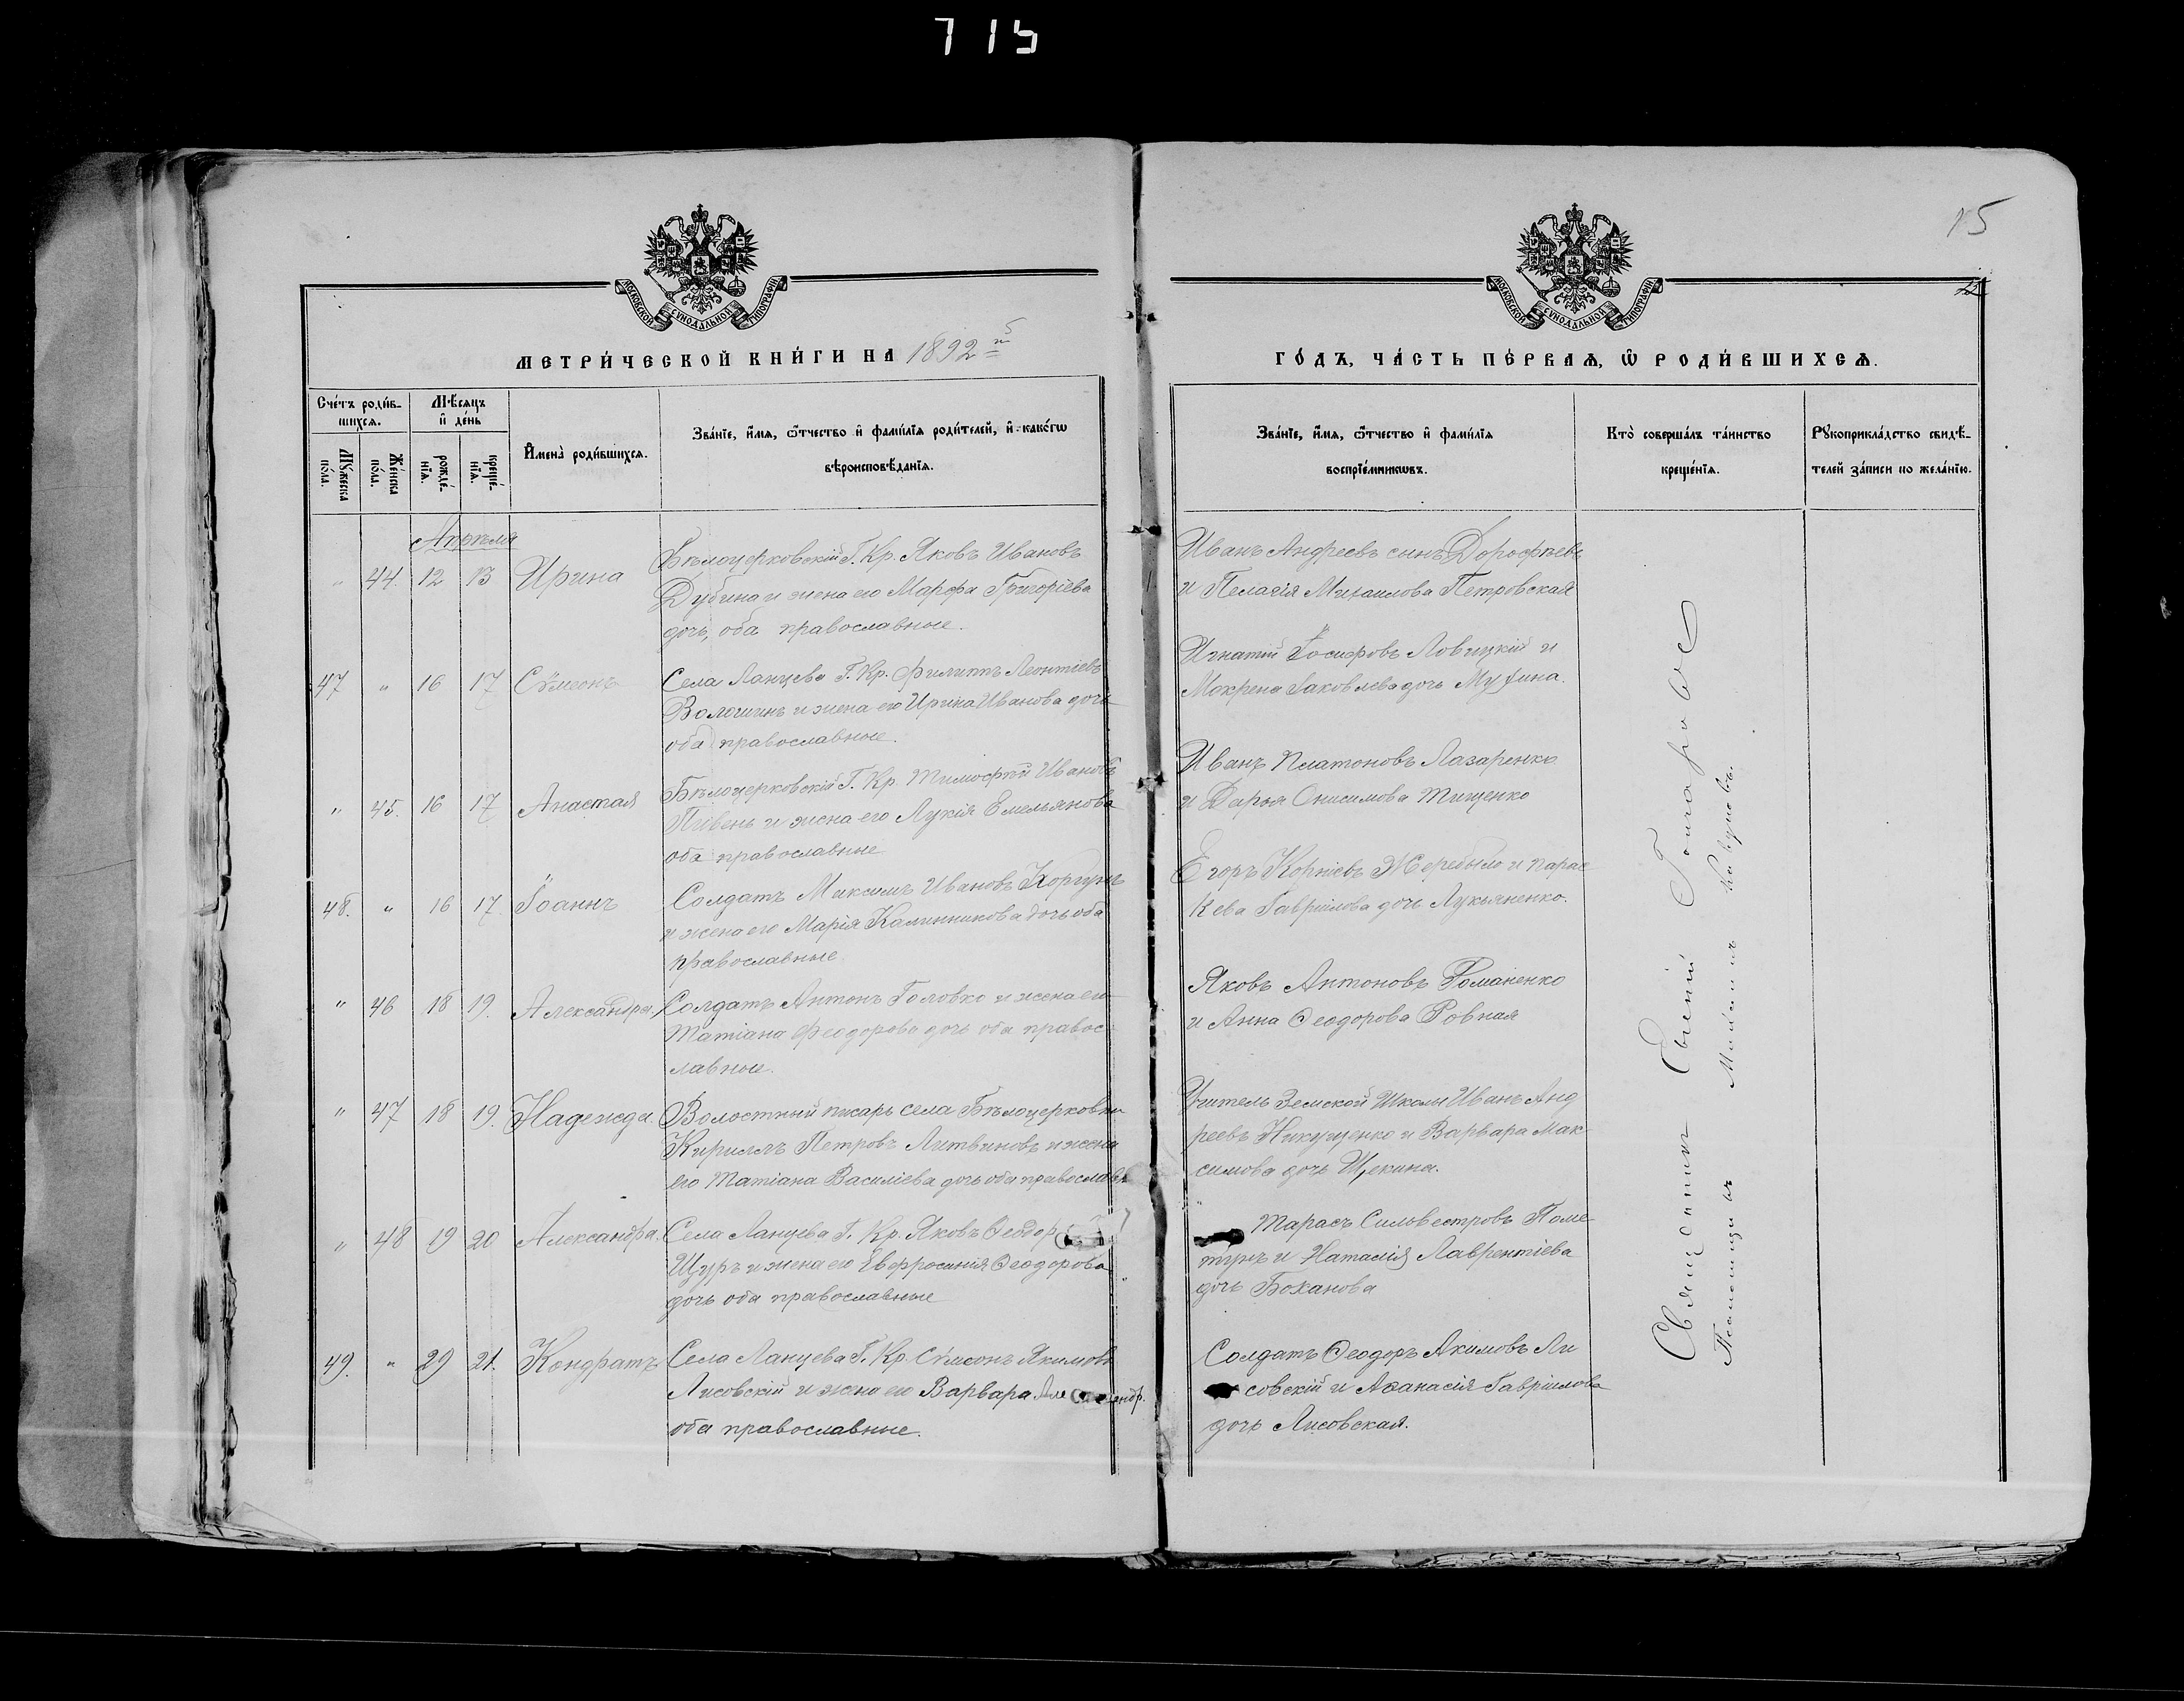 715
15
МОСКОВСКОЙ СѴНОДАЛЬНОЙ ТИПОГРАФІИ
МОСКОВСКОЙ СѴНОДАЛЬНОЙ ТИПОГРАФІИ
МЕТРИ́ЧЕСКОЙ КНИ́ГИ НА 1892 й
ГО́ДЪ, ЧА́СТЬ ПЕ́РВАѦ, Ѡ҆ РОДИ́ВШИХСѦ.
Сче́тъ роди́в-
шихсѧ.
Мꙋ́жеска по́ла.
Же́нска по́ла.
Мѣ́сѧцъ и҆ де́нь
рожде́-
нїѧ.
креще́-
нїѧ.
И҆мена̀ роди́вшихсѧ.
Зва́нїе, и҆́мѧ, ѻ҆́тчество и҆ фами́лїѧ роди́телей, и҆ како́гѡ
вѣроисповѣ́данїѧ.
Зва́нїе, и҆́мѧ, ѻ҆́тчество и҆ фами́лїѧ
воспрїе́мникѡвъ.
Кто̀ соверша́лъ та́инство
креще́нїѧ.
Рꙋкоприкла́дство свидѣ́-
телей за́писи по жела́нїю.
Апрѣля
" 44. 12 13 Ирина
Бѣлоцерковскій Г. Кр. Яковъ Ивановъ
Дубина и жена его Марѳа Григоріева
дочь, оба православные.
Иванъ Андреевъ сынъ Дорофѣевъ
и Пелагія Михаилова Петровская
47 " 16 17 Сѵмеонъ
Села Ланцева Г. Кр. Филиппъ Леонтіевъ
Волошинъ и жена его Ирина Иванова дочь
оба православные.
Игнатій Іосифовъ Ловицкій и
Макрена Іаковлева дочь
" 45. 16 17 Анастая
Бѣлоцерковскій Г. Кр. Тимофѣй Ивановъ
Пивень и жена его Лукія Емельянова
оба православные
Иванъ Платоновъ Лазаренко
и Дарья Онисимова Тищенко
48. " 16 17 Іоаннъ
Солдатъ Максимъ Ивановъ Коргунъ
и жена его Марія Калинникова дочь оба
православные
Егоръ Корніевъ Жеребыло и Парас
кева Гавріилова дочь Лукьяненко.
" 46 18 19. Александра.
Солдатъ Антонъ Головко и жена его
Татіана Феодорова дочь оба правос-
лавные.
Яковъ Антоновъ Романенко
и Анна Ѳеодорова Ровная
" 47 18 19. Надежда.
Волостный писарь села Бѣлоцерковки
Кириллъ Петровъ Литвиновъ и жена
его Татіана Василіева дочь оба православн
Учитель Земской Школы Иванъ Анд
реевъ Никущенко и Варвара Мак-
симова дочь Щекина.
" 48 19 20 Александра.
Села Ланцева Г. Кр. Яковъ Ѳеодор
Щуръ и жена его Евфросинія Ѳеодорова
дочь оба православные
Тарасъ Сильвестровъ Поме-
тунъ и Наталія Лаврентіева
дочь Боханова
49. " 29 21. Кондратъ
Села Ланцева Г. Кр. Сѵмеонъ Якимовъ
Лисовскій и жена его Варвара Александр.
оба православные.
Солдатъ Ѳеодоръ Акимовъ Ли
совскій и Аѳанасія Гавріилова
дочь Лисовская.
Священникъ Евгеній Гончаровъ
Псаломщикъ Михаилъ